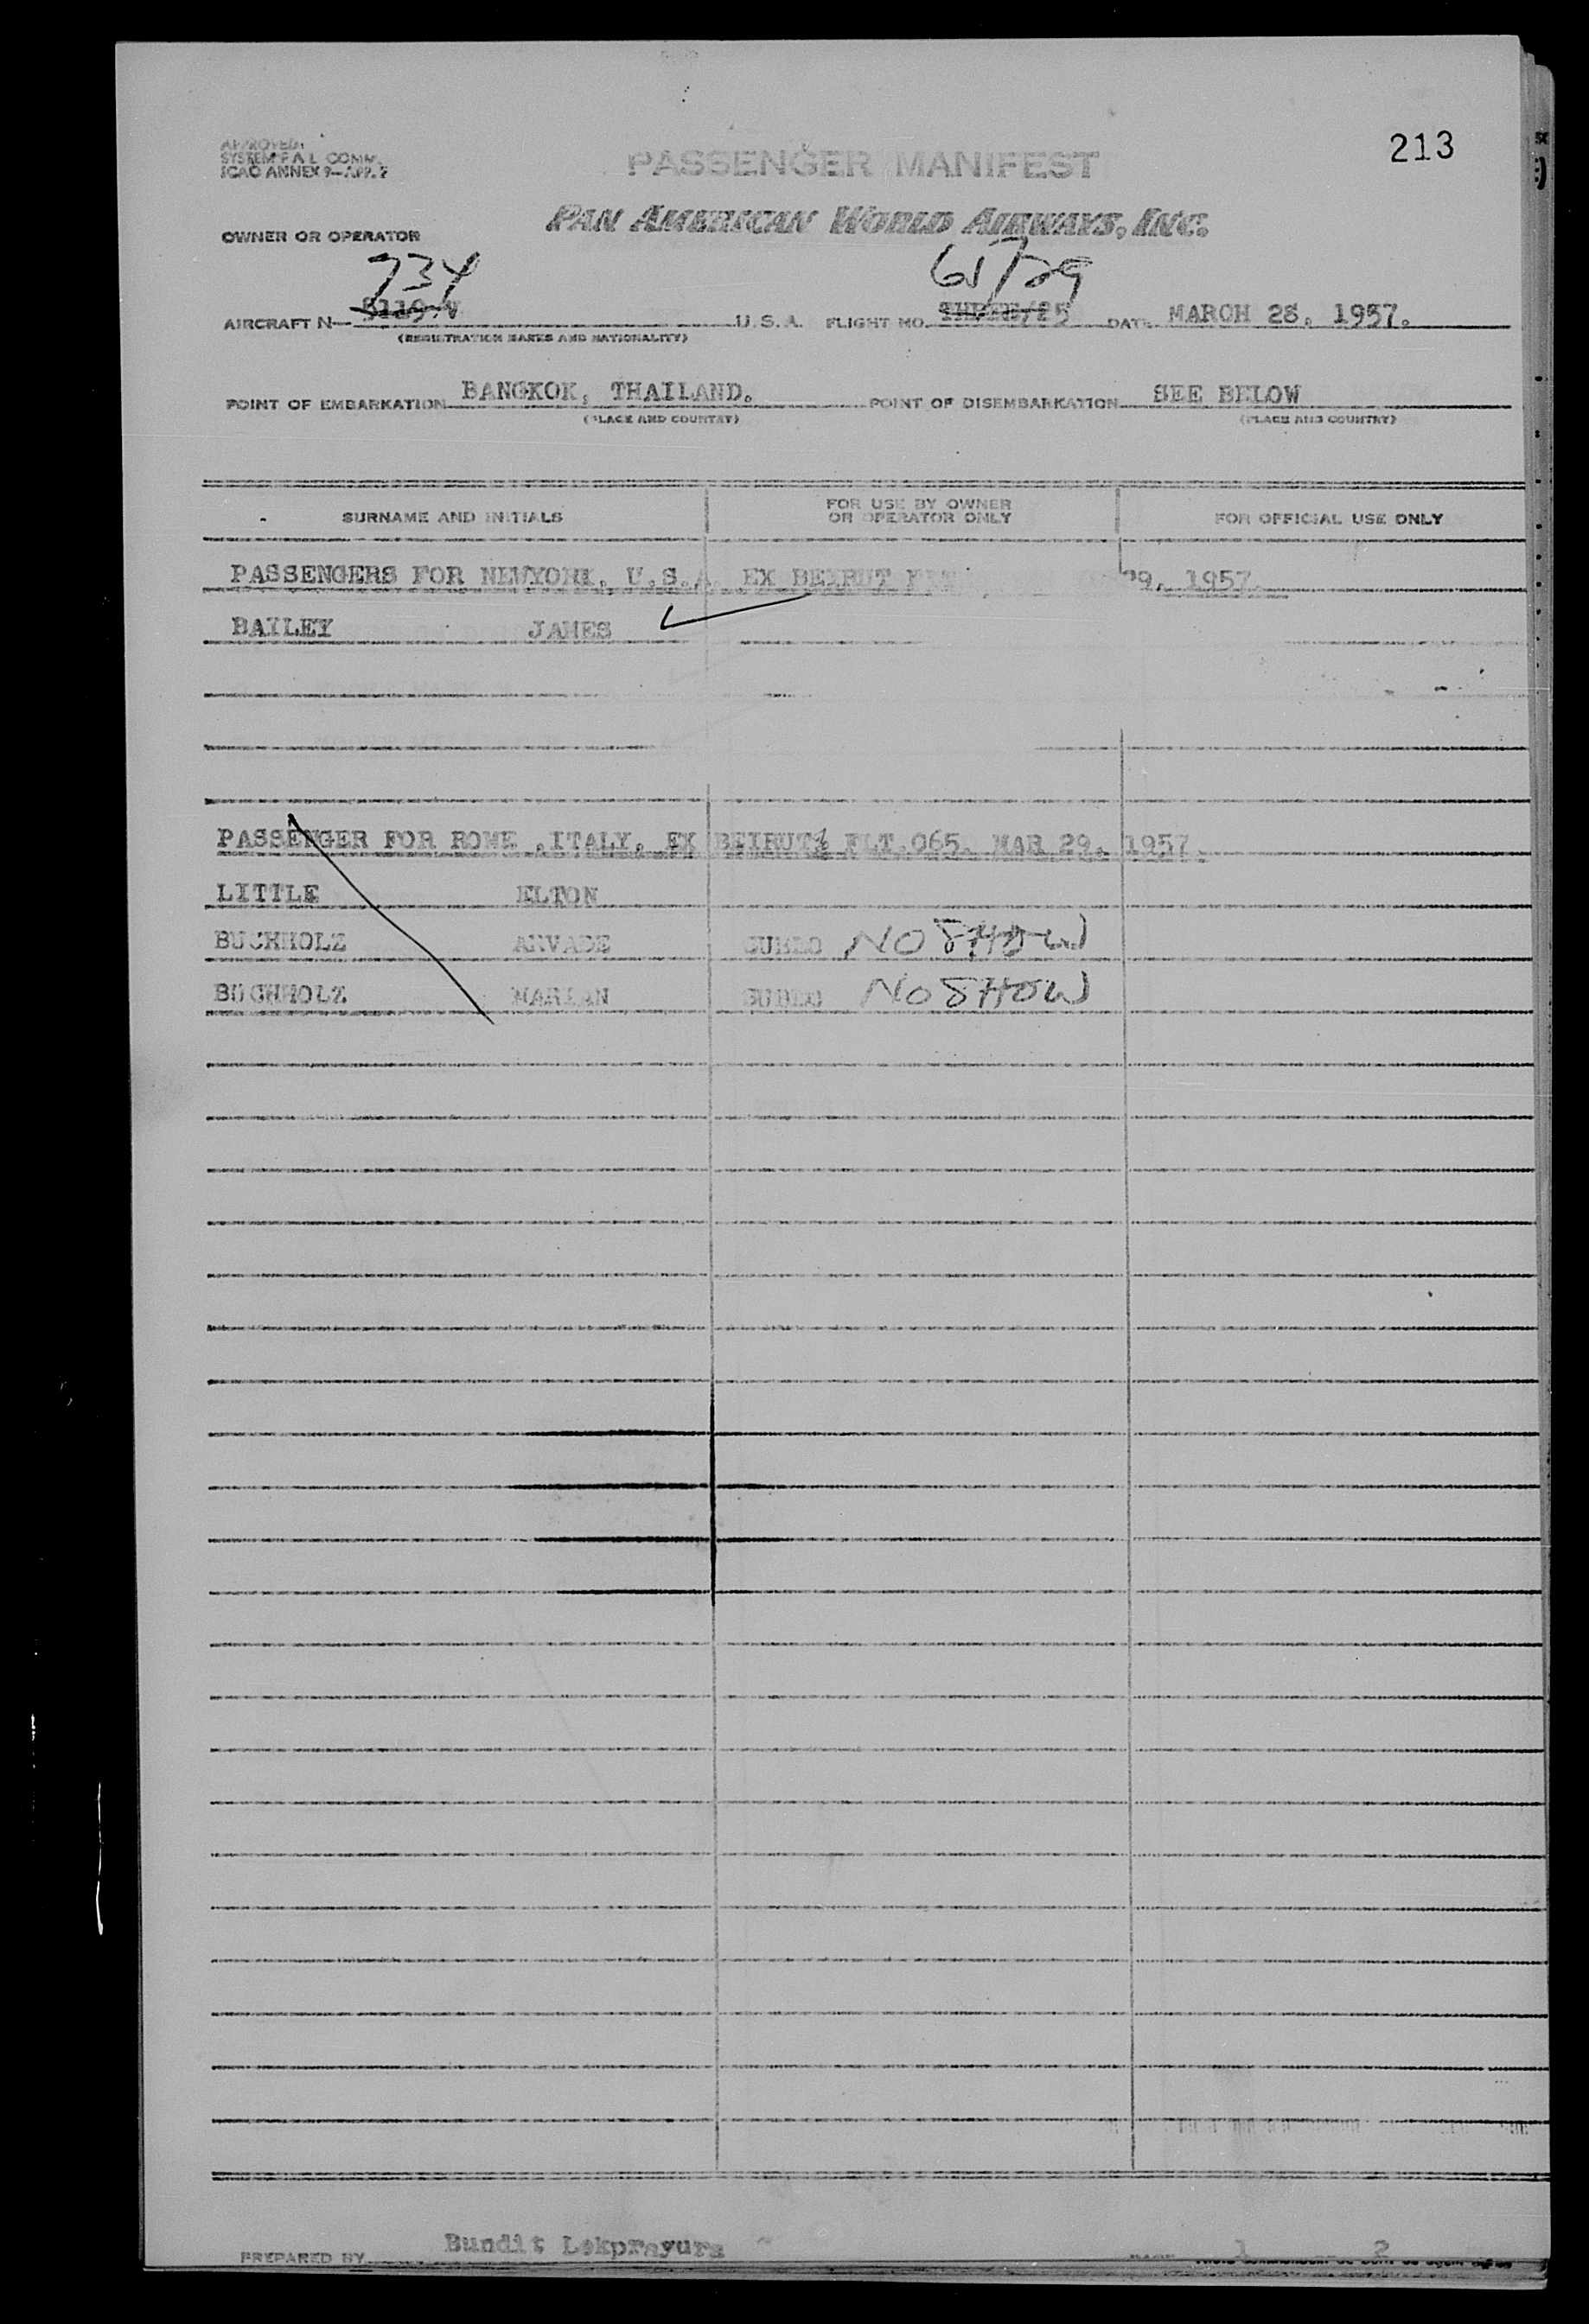 213
APPROVED:
SYSTEM F A L COMM.
ICAO ANNEX 9—APP. 2
PASSENGER MANIFEST
PAN AMERICAN WORLD AIRWAYS, INC.
OWNER OR OPERATOR
734
65/29
AIRCRAFT N— 5119-V U. S. A. FLIGHT NO. /25 DATE MARCH 28, 1957.
(REGISTRATION MARKS AND NATIONALITY)
POINT OF EMBARKATION BANGKOK, THAILAND. POINT OF DISEMBARKATION SEE BELOW
(PLACE AND COUNTRY) (PLACE AND COUNTRY)
SURNAME AND INITIALS FOR USE BY OWNER OR OPERATOR ONLY FOR OFFICIAL USE ONLY
PASSENGERS FOR NEWYORK, U.S.A. EX BEIRUT 29, 1957.
BAILEY JAMES
PASSENGER FOR ROME ,ITALY. EX BEIRUT FLT 065. MAR 29. 1957.
LITTLE ELTON
BUCHHOLZ NO SHOW
BUCHHOLZ MARIAN NO SHOW
PREPARED BY Bundit Lekprayura PAGE 1 2